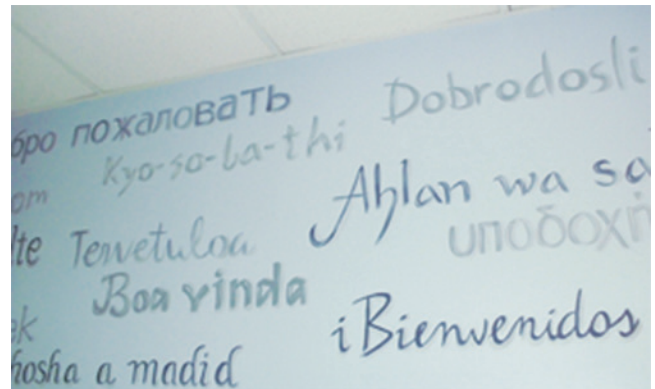 бро пожаловать
Dobrodosli
Kyo-so-la-thi
om
Ahlan wa sa
lte
Tervetuloa
υποδοχή
Boa vinda
ek
iBienvenidos
hosha a madid